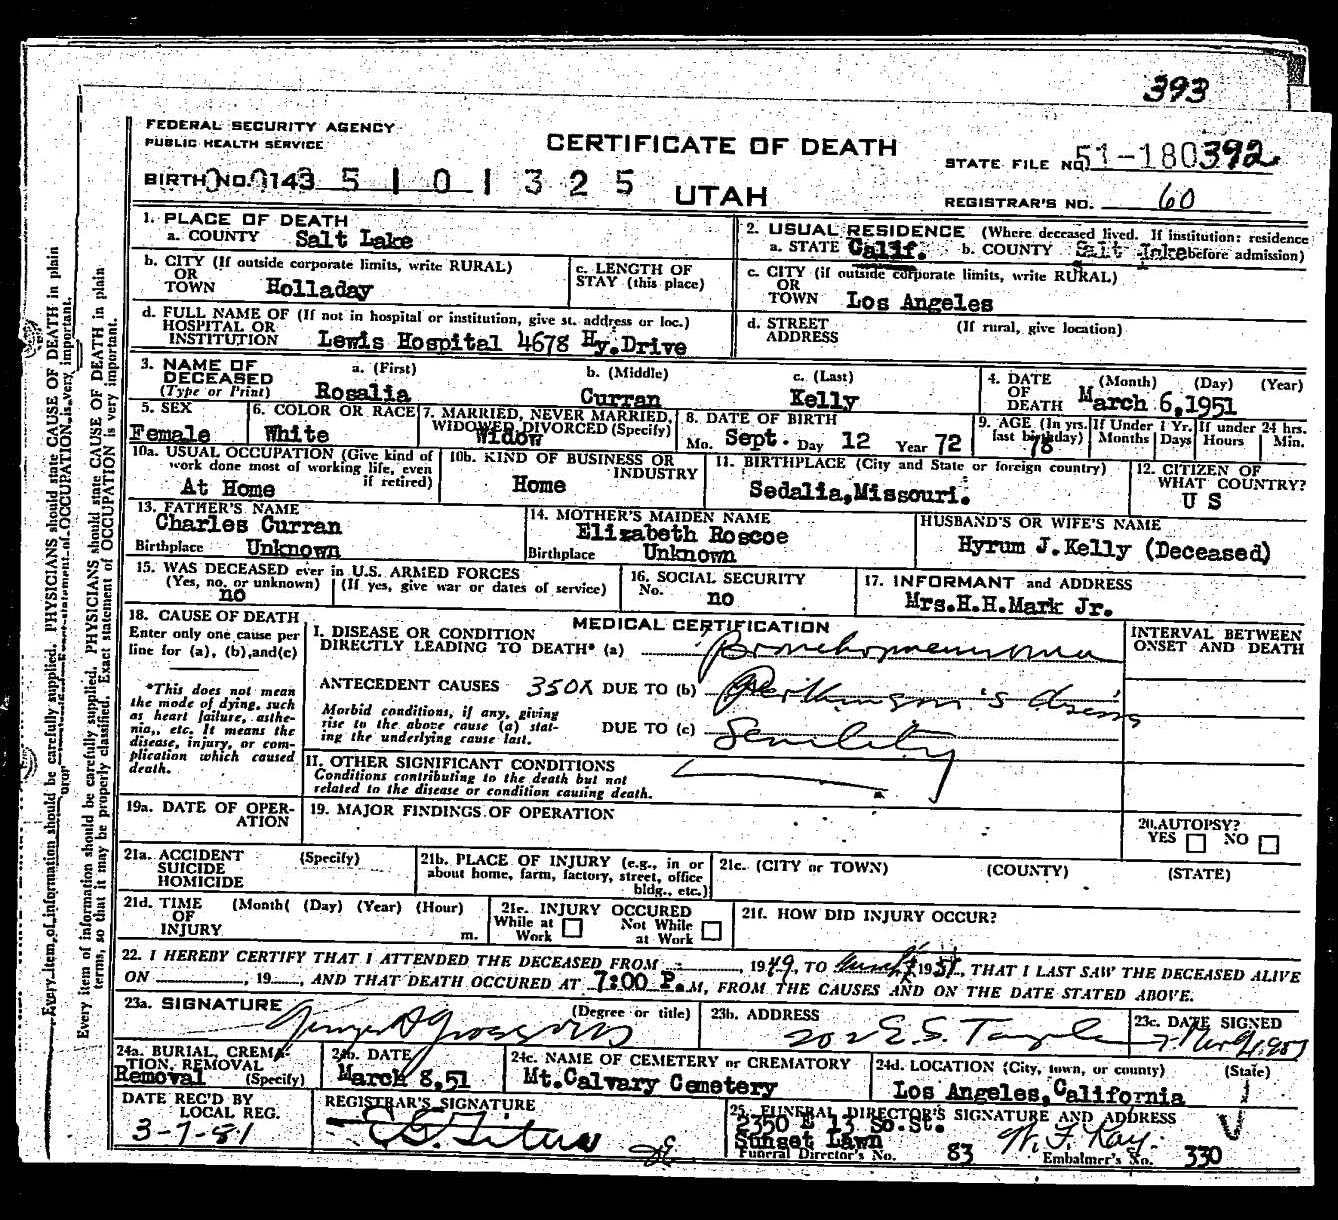 393
FEDERAL SECURITY AGENCY
PUBLIC HEALTH SERVICE
CERTIFICATE OF DEATH
STATE FILE NO. 51-180392
BIRTH NO. 0143 5101325
UTAH
REGISTRAR'S NO. 60
1. PLACE OF DEATH
a. COUNTY Salt Lake
2. USUAL RESIDENCE (Where deceased lived. If institution: residence before admission)
a. STATE Calif. b. COUNTY Salt Lake
b. CITY (If outside corporate limits, write RURAL)
OR
TOWN Holladay
c. LENGTH OF
STAY (this place)
c. CITY (if outside corporate limits, write RURAL)
OR
TOWN Los Angeles
d. FULL NAME OF (If not in hospital or institution, give st. address or loc.)
HOSPITAL OR
INSTITUTION Lewis Hospital 4678 Hy.Drive
d. STREET (If rural, give location)
ADDRESS
3. NAME OF
DECEASED
(Type or Print)
a. (First) b. (Middle) c. (Last)
Rosalia Curran Kelly
4. DATE (Month) (Day) (Year)
OF
DEATH March 6,1951
5. SEX
Female
6. COLOR OR RACE
White
7. MARRIED, NEVER MARRIED,
WIDOWED DIVORCED (Specify)
Widow
8. DATE OF BIRTH
Mo. Sept. Day 12 Year 72
9. AGE (In yrs. last birthday) 78
If Under 1 Yr. Months Days
If under 24 hrs. Hours Min.
10a. USUAL OCCUPATION (Give kind of
work done most of working life, even
if retired)
At Home
10b. KIND OF BUSINESS OR
INDUSTRY
Home
11. BIRTHPLACE (City and State or foreign country)
Sedalia,Missouri.
12. CITIZEN OF
WHAT COUNTRY?
U S
13. FATHER'S NAME
Charles Curran
Birthplace Unknown
14. MOTHER'S MAIDEN NAME
Elizabeth Roscoe
Birthplace Unknown
HUSBAND'S OR WIFE'S NAME
Hyrum J.Kelly (Deceased)
15. WAS DECEASED ever in U.S. ARMED FORCES
(Yes, no, or unknown) (If yes, give war or dates of service)
no
16. SOCIAL SECURITY
No. no
17. INFORMANT and ADDRESS
Mrs.H.H.Mark Jr.
18. CAUSE OF DEATH
Enter only one cause per
line for (a), (b),and(c)
*This does not mean
the mode of dying, such
as heart failure, asthe-
nia,, etc. It means the
disease, injury, or com-
plication which caused
death.
MEDICAL CERTIFICATION
I. DISEASE OR CONDITION
DIRECTLY LEADING TO DEATH* (a) Bronchopneumonia
ANTECEDENT CAUSES 350X DUE TO (b) Parkinson's disease
Morbid conditions, if any, giving
rise to the above cause (a) stat-
ing the underlying cause last.
DUE TO (c) Senility
II. OTHER SIGNIFICANT CONDITIONS
Conditions contributing to the death but not
related to the disease or condition causing death.
INTERVAL BETWEEN
ONSET AND DEATH
19a. DATE OF OPER-
ATION
19. MAJOR FINDINGS OF OPERATION
20. AUTOPSY?
YES NO
21a. ACCIDENT (Specify)
SUICIDE
HOMICIDE
21b. PLACE OF INJURY (e.g., in or
about home, farm, factory, street, office
bldg., etc.)
21c. (CITY or TOWN) (COUNTY) (STATE)
21d. TIME (Month( (Day) (Year) (Hour)
OF
INJURY m.
21e. INJURY OCCURED
While at Work Not While at Work
21f. HOW DID INJURY OCCUR?
22. I HEREBY CERTIFY THAT I ATTENDED THE DECEASED FROM 1949, TO March 1951, THAT I LAST SAW THE DECEASED ALIVE
ON , 19 , AND THAT DEATH OCCURED AT 7:00 P.M, FROM THE CAUSES AND ON THE DATE STATED ABOVE.
23a. SIGNATURE (Degree or title)
23b. ADDRESS
202 E. S. Temple
23c. DATE SIGNED
24a. BURIAL, CREMA-
TION, REMOVAL
Removal (Specify)
24b. DATE
March 8,51
24c. NAME OF CEMETERY or CREMATORY
Mt.Calvary Cemetery
24d. LOCATION (City, town, or county) (State)
Los Angeles,California
DATE REC'D BY
LOCAL REG.
3-7-51
REGISTRAR'S SIGNATURE
25. FUNERAL DIRECTOR'S SIGNATURE AND ADDRESS
2350 E 13 So.St.
Sunset Lawn
W. F. Kay.
Funeral Director's No. 83 Embalmer's No. 330
Every item of information should be carefully supplied. PHYSICIANS should state CAUSE OF DEATH in plain
terms, so that it may be properly classified. Exact statement of OCCUPATION is very important.